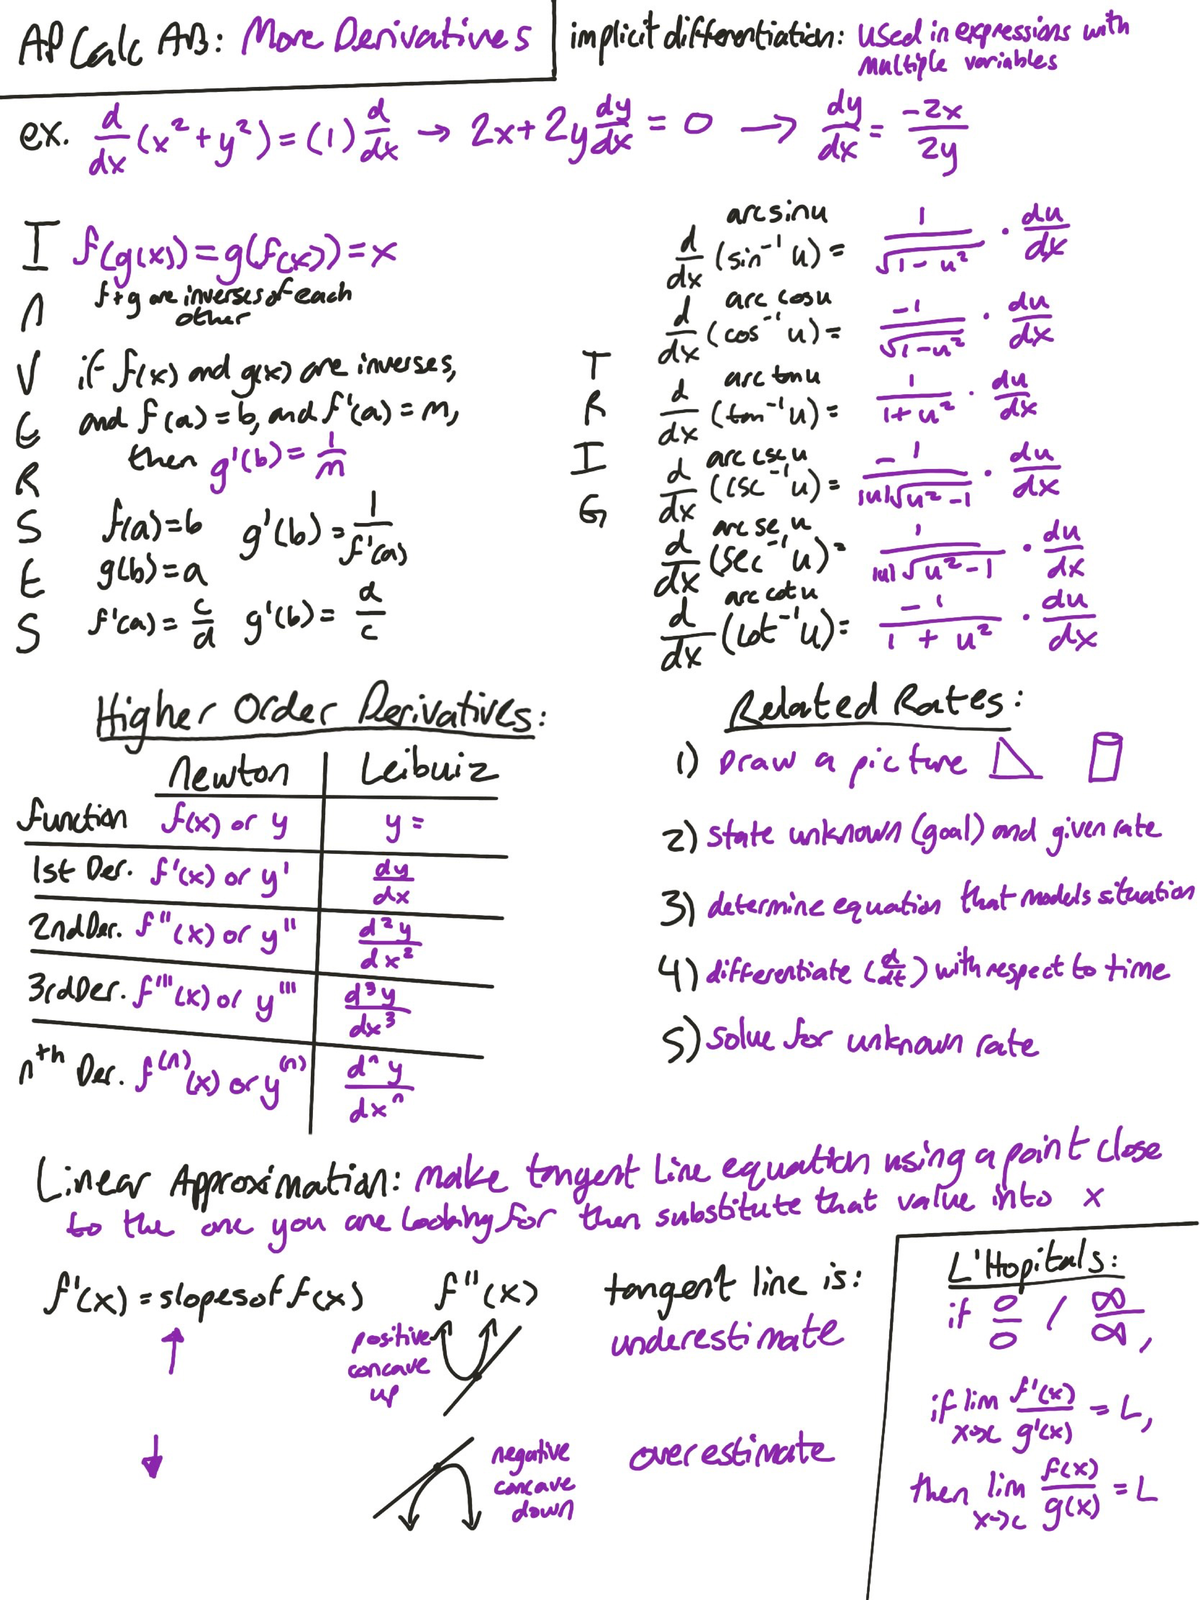 AP Calc AB: More Derivatives
implicit differentiation: used in expressions with
multiple variables
ex. d/dx (x² + y²) = (1) d/dx → 2x + 2y dy/dx = 0 → dy/dx = -2x/2y
INVERSES
f(g(x)) = g(f(x)) = x
f + g are inverses of each
other
if f(x) and g(x) are inverses,
and f(a) = b, and f'(a) = m,
then g'(b) = 1/m
f(a) = b g'(b) = 1/f'(a)
g(b) = a
f'(a) = c/d g'(b) = d/c
TRIG
arcsinu
d/dx (sin⁻¹ u) = 1/√(1 - u²) · du/dx
arc cosu
d/dx (cos⁻¹ u) = -1/√(1 - u²) · du/dx
arc tanu
d/dx (tan⁻¹ u) = 1/(1 + u²) · du/dx
arc csc u
d/dx (csc⁻¹ u) = -1/(|u|√(u² - 1)) · du/dx
arc sec u
d/dx (sec⁻¹ u) = 1/(|u|√(u² - 1)) · du/dx
arc cot u
d/dx (cot⁻¹ u) = -1/(1 + u²) · du/dx
Higher Order Derivatives:
Newton Leibniz
function f(x) or y y =
1st Der. f'(x) or y' dy/dx
2nd Der. f''(x) or y'' d²y/dx²
3rd Der. f'''(x) or y''' d³y/dx³
nᵗʰ Der. f⁽ⁿ⁾(x) or y⁽ⁿ⁾ dⁿy/dxⁿ
Related Rates:
1) Draw a picture
2) state unknown (goal) and given rate
3) determine equation that models situation
4) differentiate (d/dt) with respect to time
5) solve for unknown rate
Linear Approximation: make tangent line equation using a point close
to the one you are looking for then substitute that value into x
f'(x) = slopes of f(x) f''(x) tangent line is:
↑ positive underestimate
concave
up
↓ negative overestimate
concave
down
L'Hopitals:
if 0/0 / ∞/∞,
if lim x→c f'(x)/g'(x) = L,
then lim x→c f(x)/g(x) = L